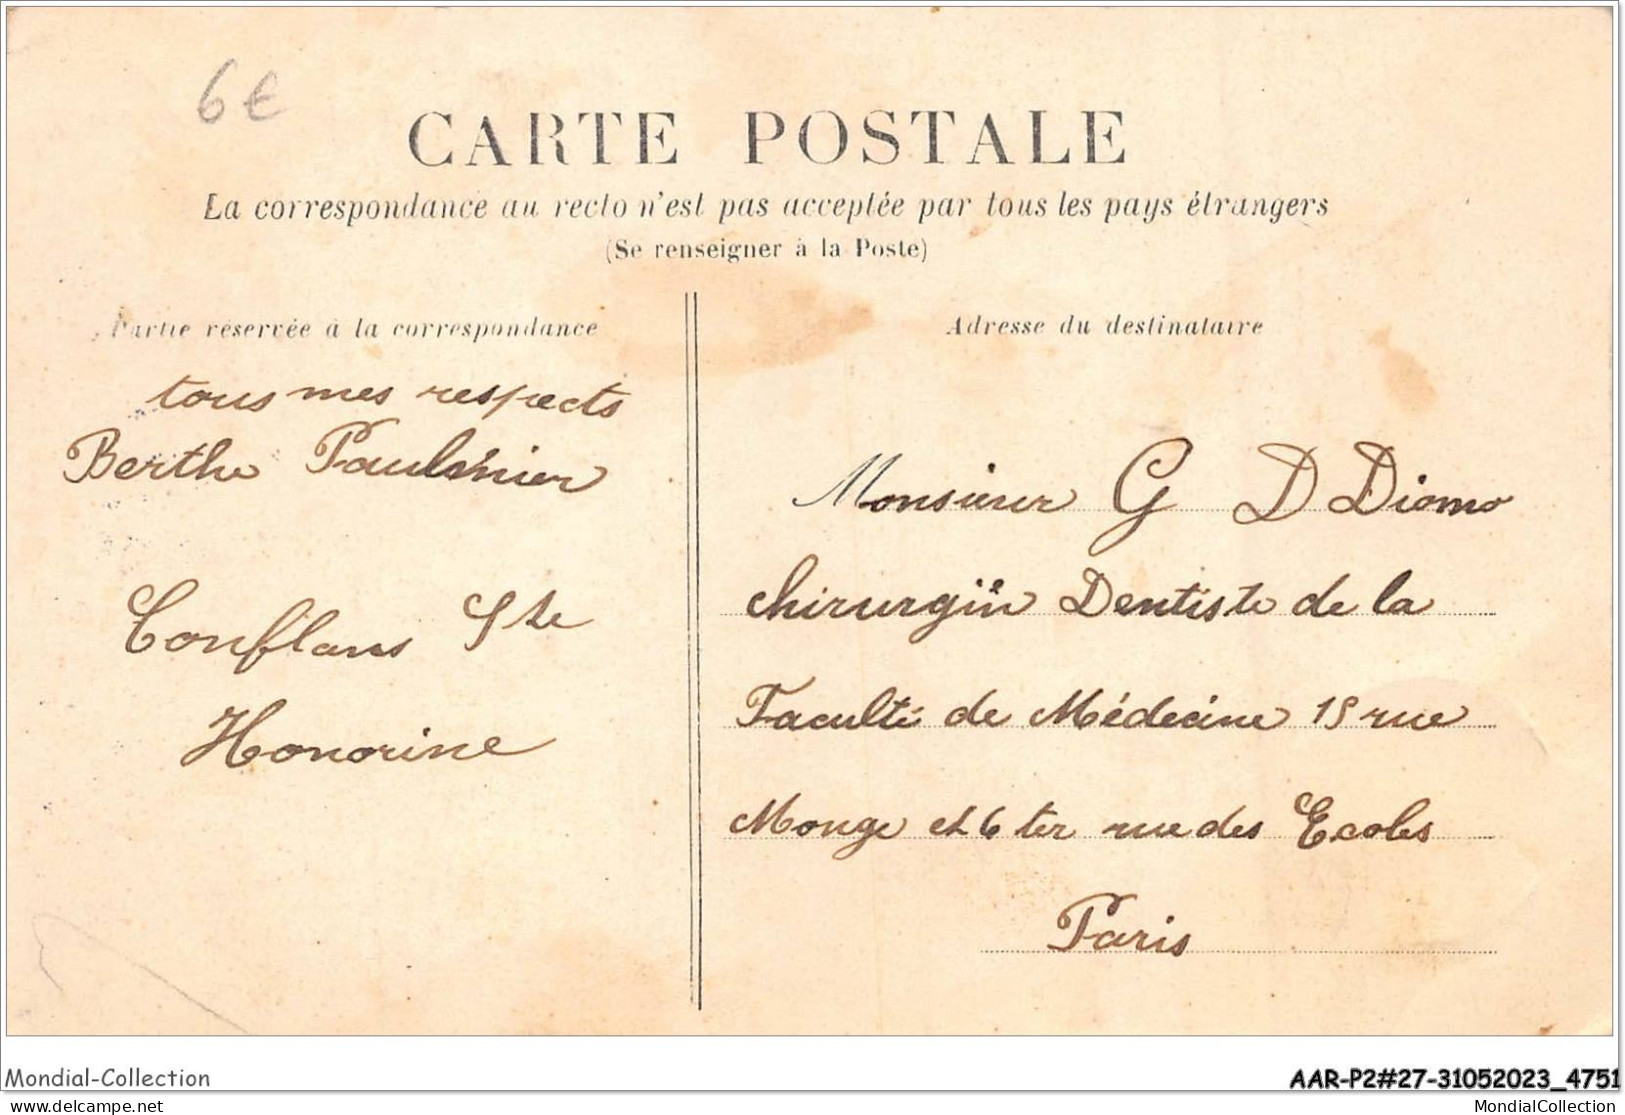 6€
CARTE POSTALE
La correspondance au recto n'est pas acceptée par tous les pays étrangers
(Se renseigner à la Poste)
Partie réservée à la correspondance
Adresse du destinataire
tous mes respects
Berthe
Conflans Ste
Honorine
Monsieur G D Diomo
chirurgiin Dentiste de la
Faculté de Médecine 15 rue
Monge et 6 ter rue des Ecoles
Paris
Mondial-Collection
AAR-P2#27-31052023_4751
www.delcampe.net
MondialCollection